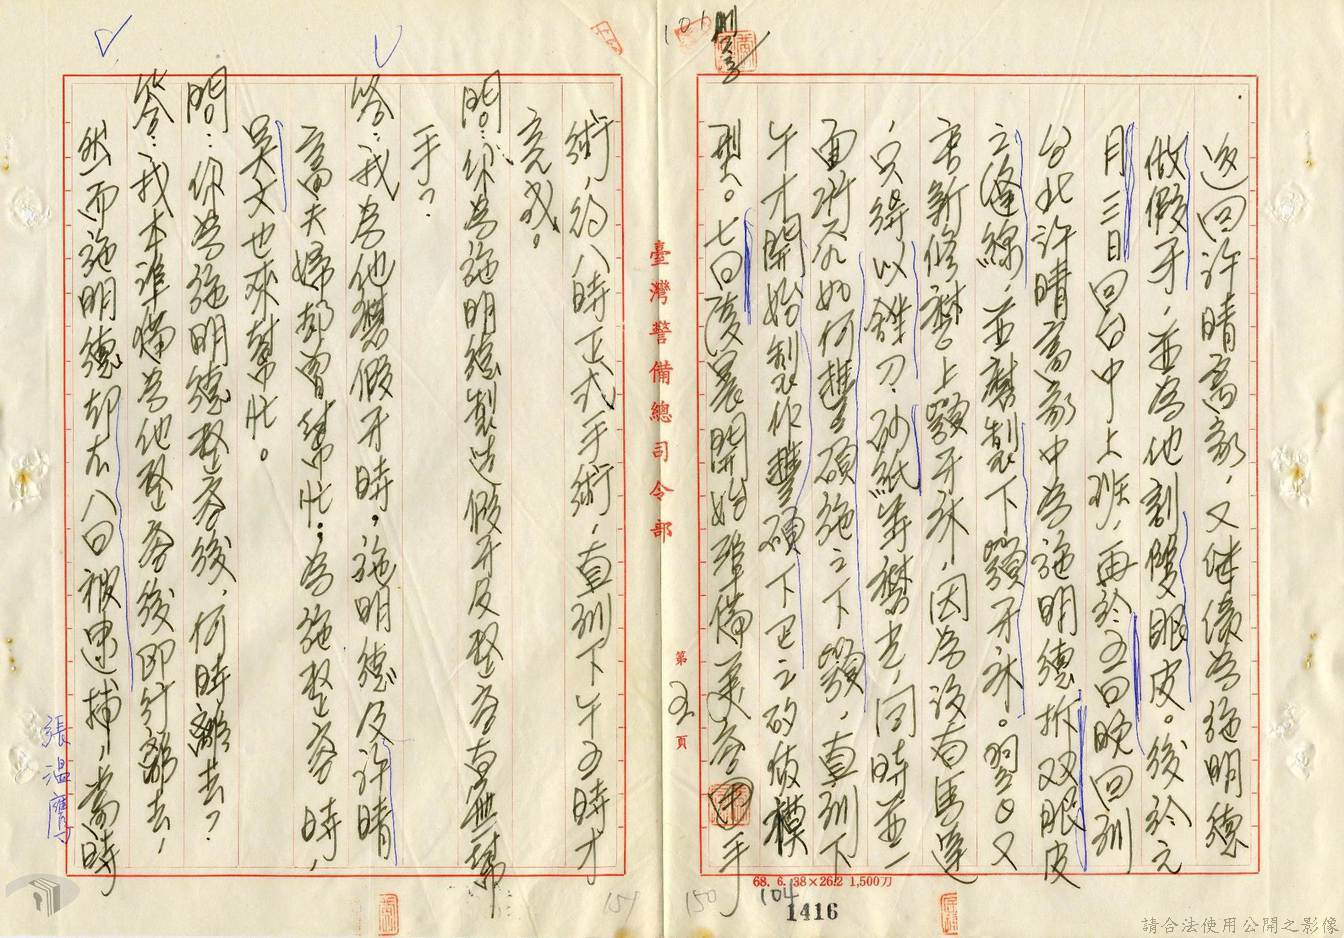 返回許晴富家，又繼續為施明德
做假牙，並為他割雙眼皮。後於元
月三日回台中上班，再於五日晚回到
台北許晴富家中為施明德拆双眼皮
之縫線，並磨製下顎牙床。翌日又
重新修磨上顎牙床，因為沒有馬達
，只得以銼刀、砂紙等磨光，同時並一
面研究如何墊碩施之下顎，直到下
午才開始製作墊碩下巴之矽做模
型。七日後晨開始準備美容手
術，約八時正式手術，直到下午五時才
完成。
問：你為施明德製造假牙及整容有無幫
手？
答：我為他磨假牙時，施明德及許晴
富夫婦都曾幫忙；為施整容時，
吳文也來幫忙。
問：你為施明德整容後，何時離去？
答：我本準備為他整容後即行離去，
然而施明德却在八日被逮捕，當時
張溫鷹
臺灣警備總司令部
第五頁
68. 6. 38×26.2 1,500刀
104
1416
150
151
請合法使用公開之影像